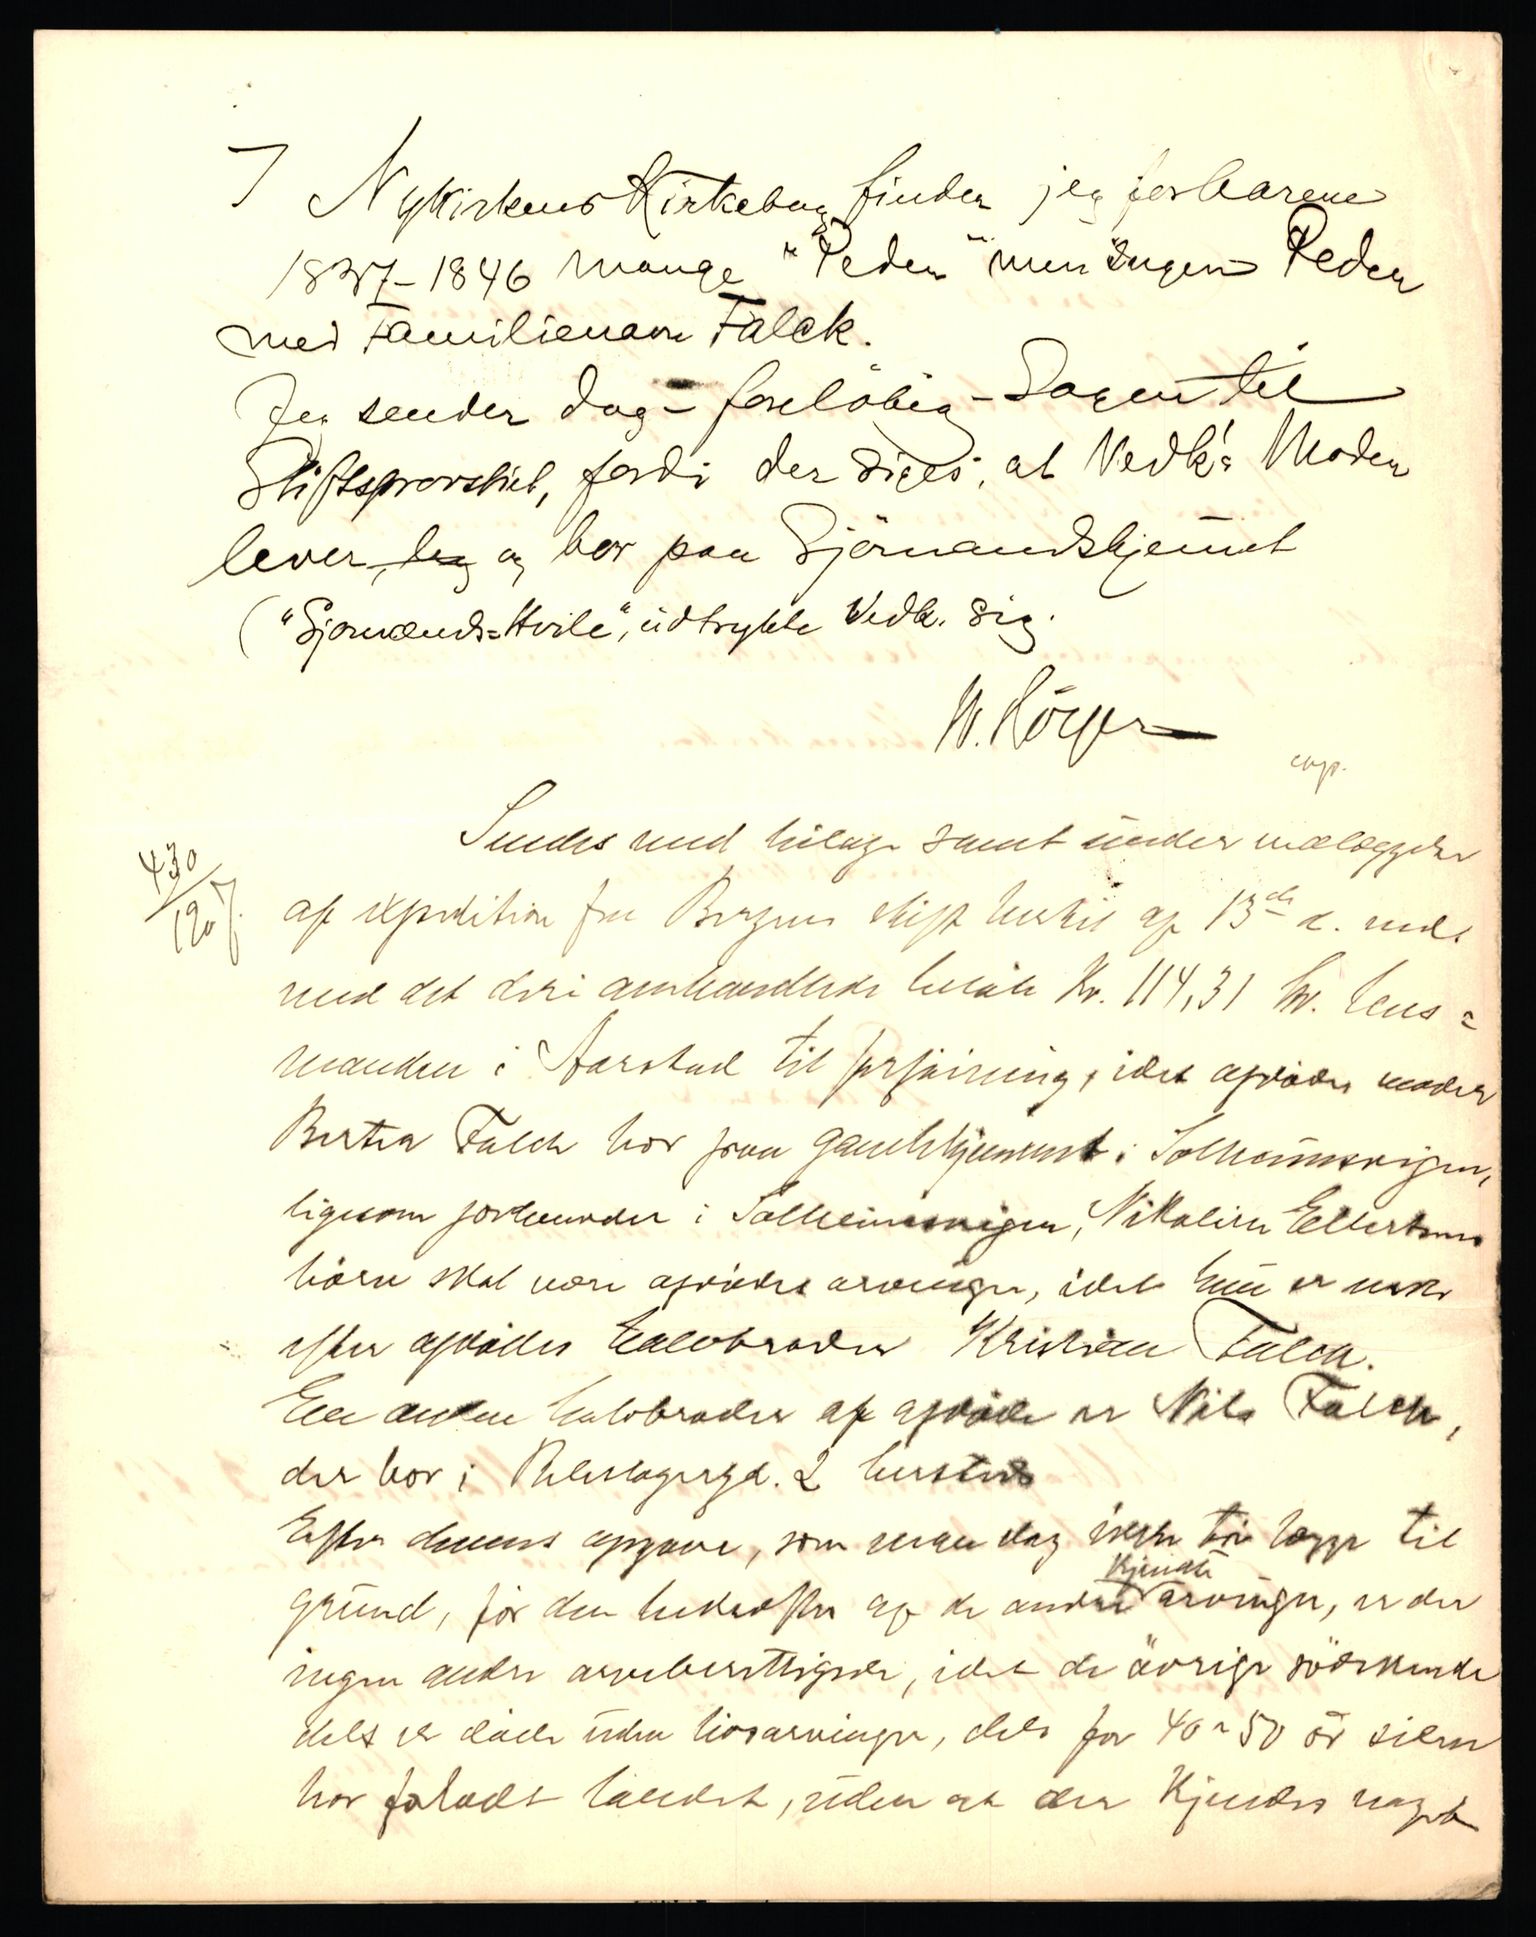 I Nykirkens Kirkebog finder jeg for Aarene
1837-1846 mange "Peder" men ingen Peder
med Familienavn Falck.
Jeg sender dog - foreløbig - Sagen til
Stiftsprovstiet, fordi der siges, at Vedk's Moder
lever, og bor paa Sjömandshjemmet
("Sjomands=Hvile", udtrykte Vedk. sig.
W. Hörger
Sendes med bilage samt under vedlæggelse
af expedition fra Bergens skifteret af 13de d. mds
med det deri omhandlede beløb Kr. 114,31 hr. lens=
430/1907.
manden i Aarstad til forføining, idet afdødes moder
Berta Falch bor paa gamlehjemmet i Solheimsvigen,
ligesom jordemoder i Solheimsvigen, Nikoline Ellertsens
børn skal være afdødes arvinger, idet hun er enke
efter afdødes halvbroder Kristian Falch.
En anden halvbroder af afdøde er Nils Falch,
der bor i Reberbanegd. 2 hersteds
Efter dennes opgave, som man dog ikke tør lægge til
grund, før den bekræftes af de andre kjendte arvinger, er der
ingen andre arveberettigede, idet de øvrige søskende
dels er døde uden livsarvinger, dels for 40 a 50 år siden
har forladt landet, uden at der kjendes noget